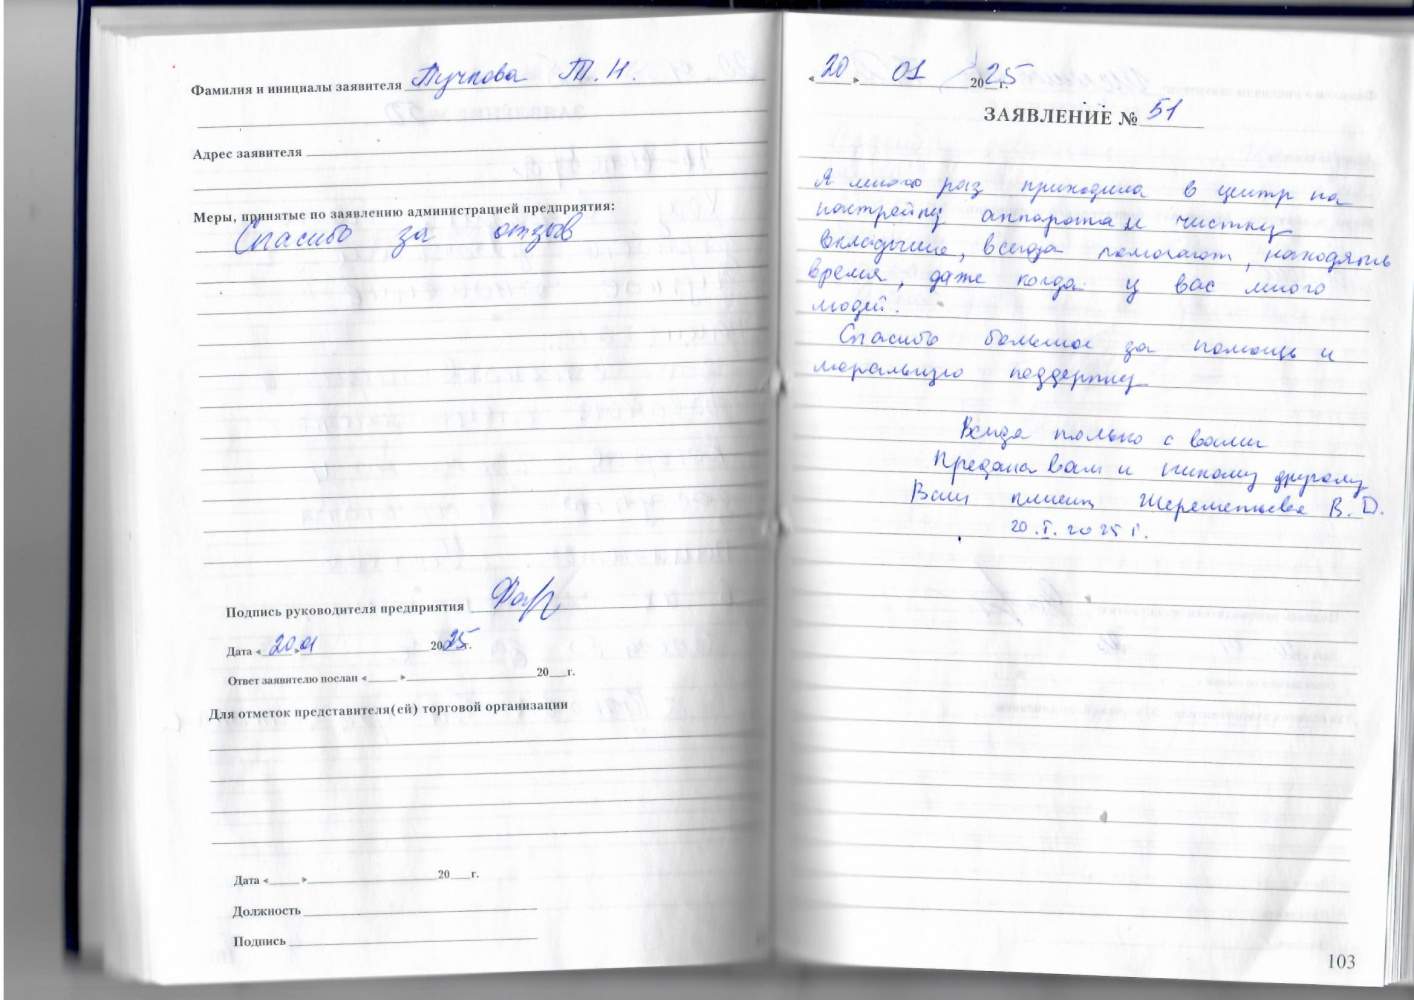 Фамилия и инициалы заявителя Пучкова Т.Н.
Адрес заявителя
Меры, принятые по заявлению администрацией предприятия:
Спасибо за отзыв
Подпись руководителя предприятия
Дата « 20.01 » 2025г.
Ответ заявителю послан « » 20 г.
Для отметок представителя(ей) торговой организации
Дата « » 20 г.
Должность
Подпись
« 20 » 01 2025г.
ЗАЯВЛЕНИЕ № 51
Я много раз приходила в центр на
настройку аппарата и чистку
вкладыша, всегда помогают, находят
время, даже когда у вас много
людей.
Спасибо большое за помощь и
моральную поддержку
Всегда только с вами
Предана вам и никому другому
Ваш Шереметьева В. D.
20.I.2025 г.
103